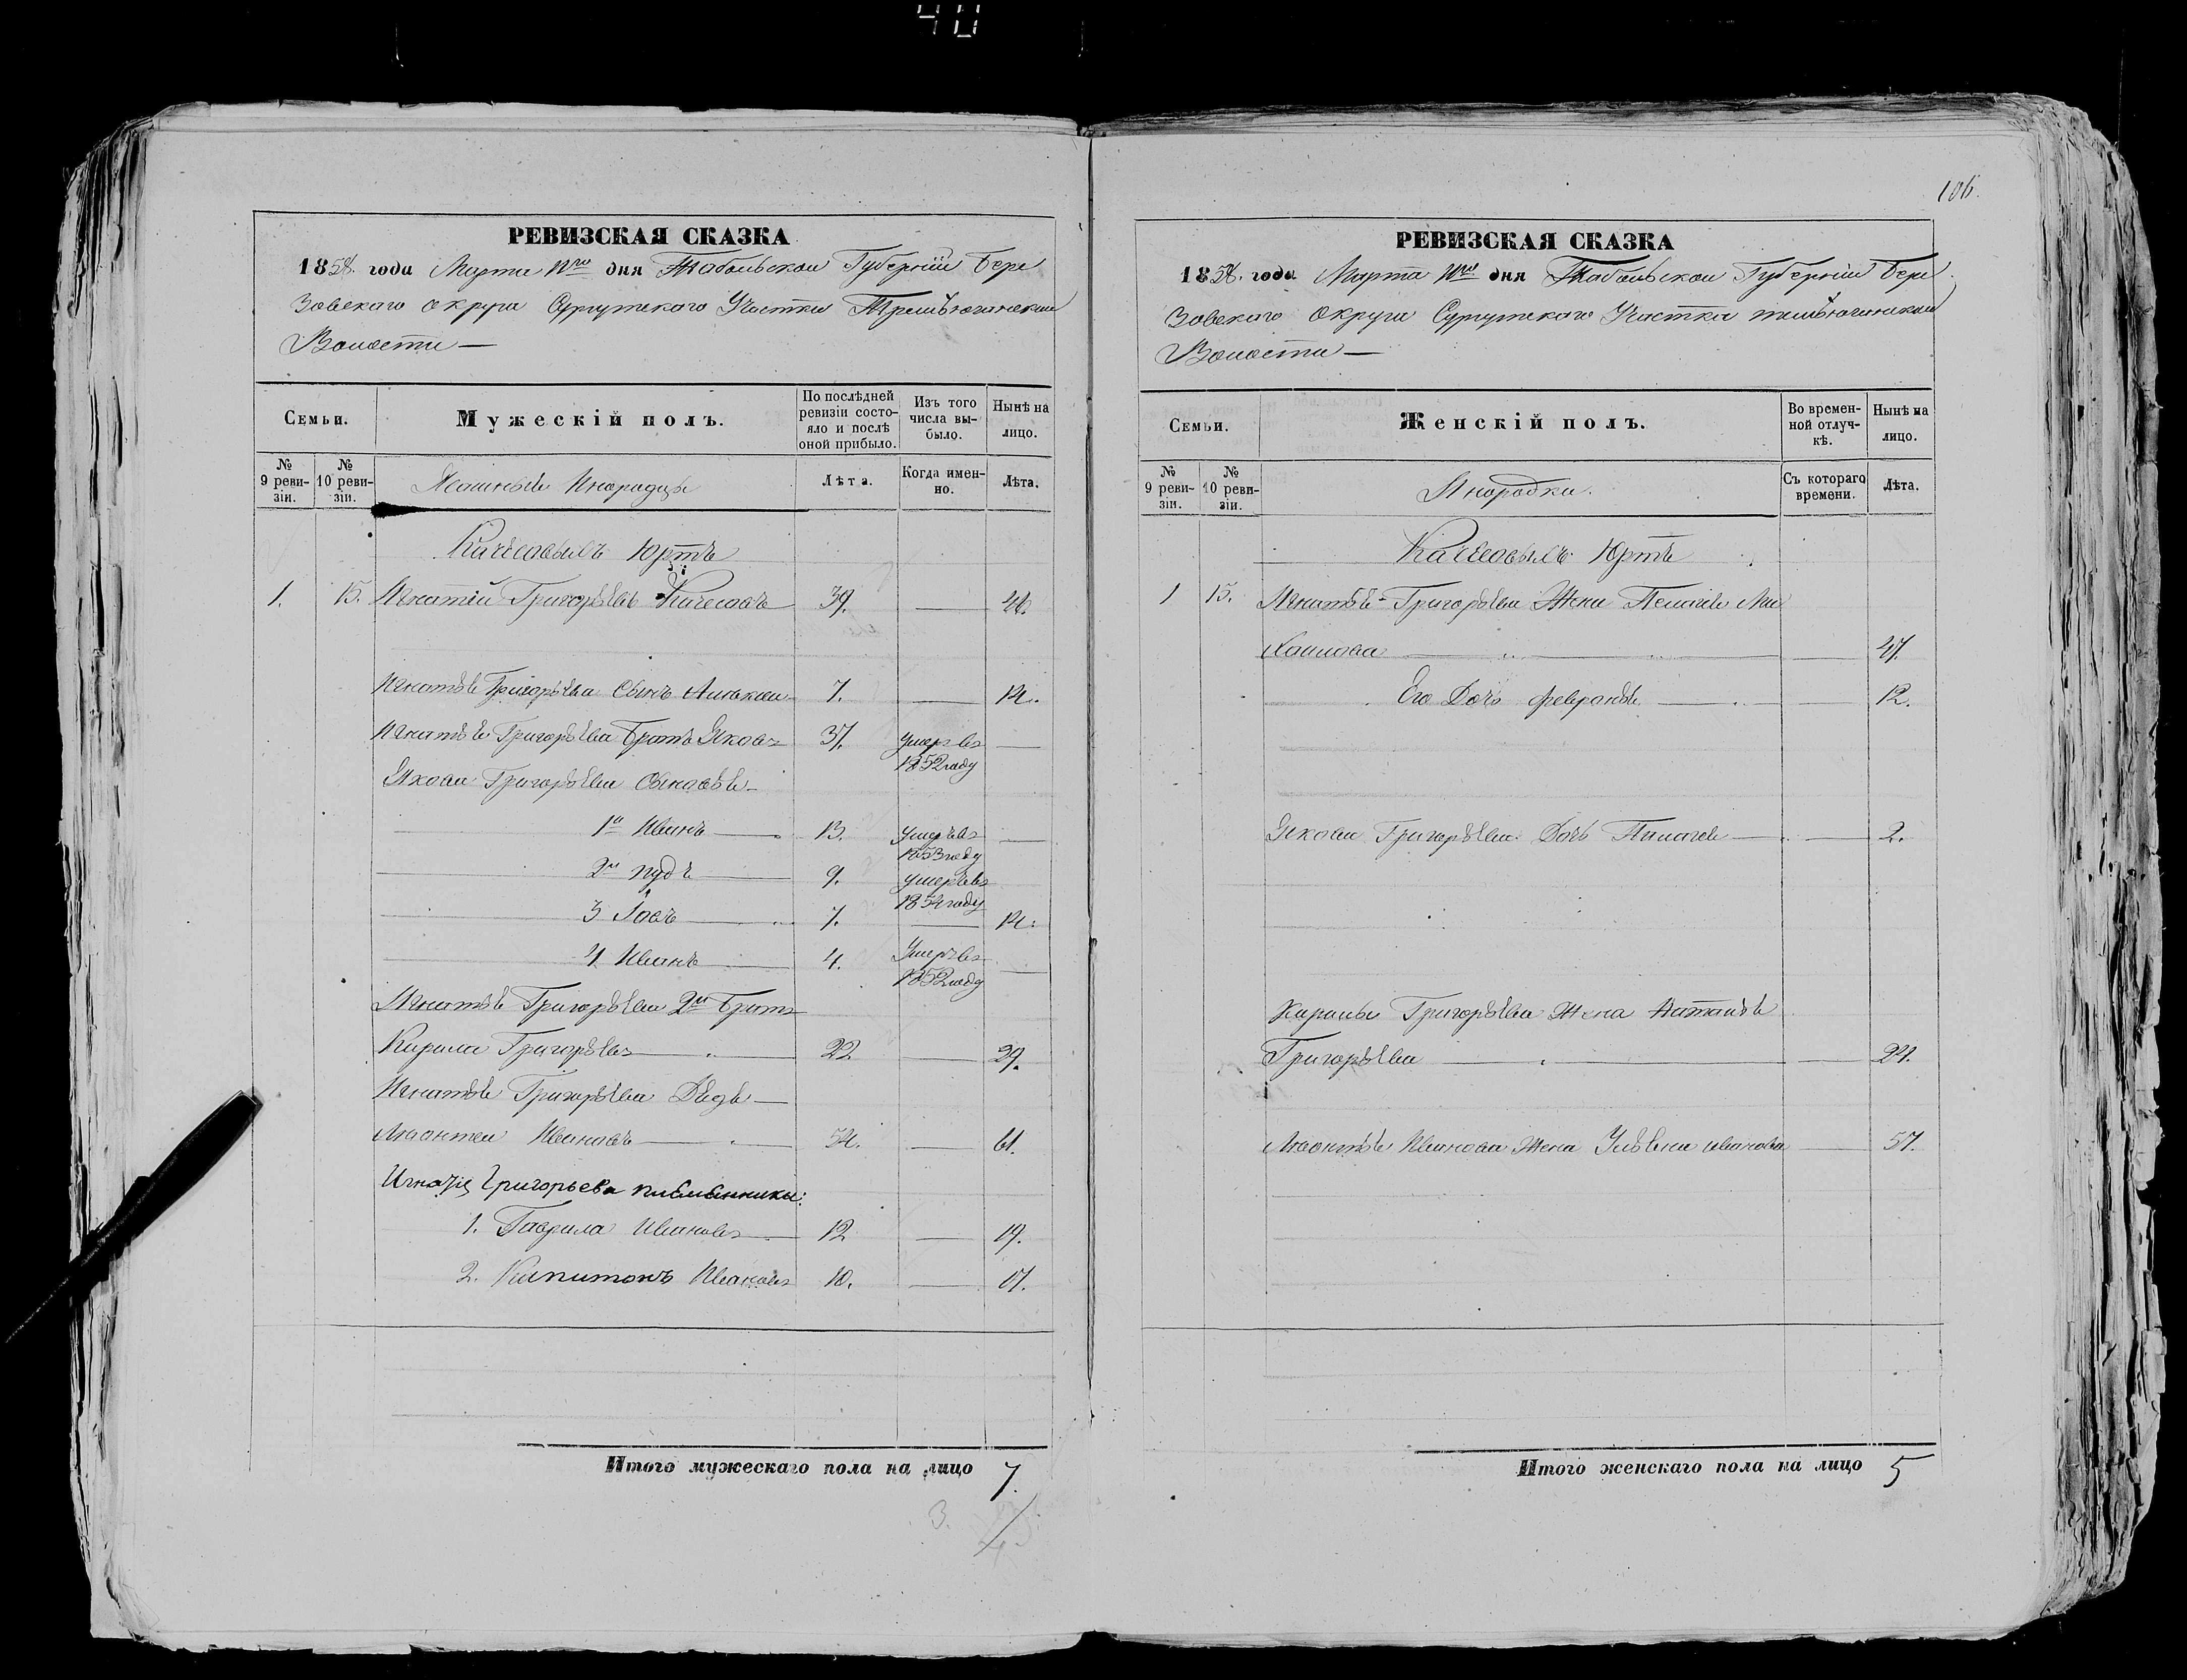 40
РЕВИЗСКАЯ СКАЗКА
1858 года Марта дня Тобольской Губерніи Бере
зовскаго округа Сургутскаго Участка
Волости —
Семьи.
Мужескій полъ.
По послѣдней ревизіи состояло и послѣ оной прибыло.
Изъ того числа выбыло.
Нынѣ на лицо.
№ 9 ревизіи.
№ 10 ревизіи.
Ясашныи Инородцы
Лѣта.
Когда именно.
Лѣта.
Юртъ
1. 15. Игнатій Григорьевъ 39. — 46.
Игнатья Григорьева Сынъ 7. — 14.
Игнатья Григорьева братъ Яковъ 37. умеръ въ 1852 году —
Якова Григорьева Сыновья —
1й Иванъ — 13. умеръ въ 1853 году —
2й пудъ — 9. умеръ въ 1854 году
3 Іовъ — 7. — 14.
4 Иванъ — 4. Умеръ въ 1852 году —
Игнатья Григорьева 2й братъ
Кирила Григорьевъ — 22 — 29.
Игнатья Григорьева Дядя —
Леонтеи Ивановъ — 54. — 61.
Игнатія Григорьева племянники:
1. Гаврила Ивановъ 12 — 19.
2. Капитонъ Ивановъ 10. — 17.
Итого мужескаго пола на лицо 7.
3.
106.
РЕВИЗСКАЯ СКАЗКА
1858. года Марта дня Тобольской Губерніи Бере
зовскаго округа Сургутскаго Участка
Волости —
Семьи.
Женскій полъ.
Во временной отлучкѣ.
Нынѣ на лицо.
№ 9 ревизіи.
№ 10 ревизіи.
Инородки.
Съ котораго времени.
Лѣта.
Юртъ
1 15. Игнатья Григорьева Жена Пелагея Ми
хаилова — 47.
Его Дочь февранья — 12.
Якова Григорьева Дочь Пилагея — 2.
Кирилы Григорьева Жена Наталья
Григорьева — 24.
Леонтья Иванова Жена Ульяна иванова — 57.
Итого женскаго пола на лицо 5